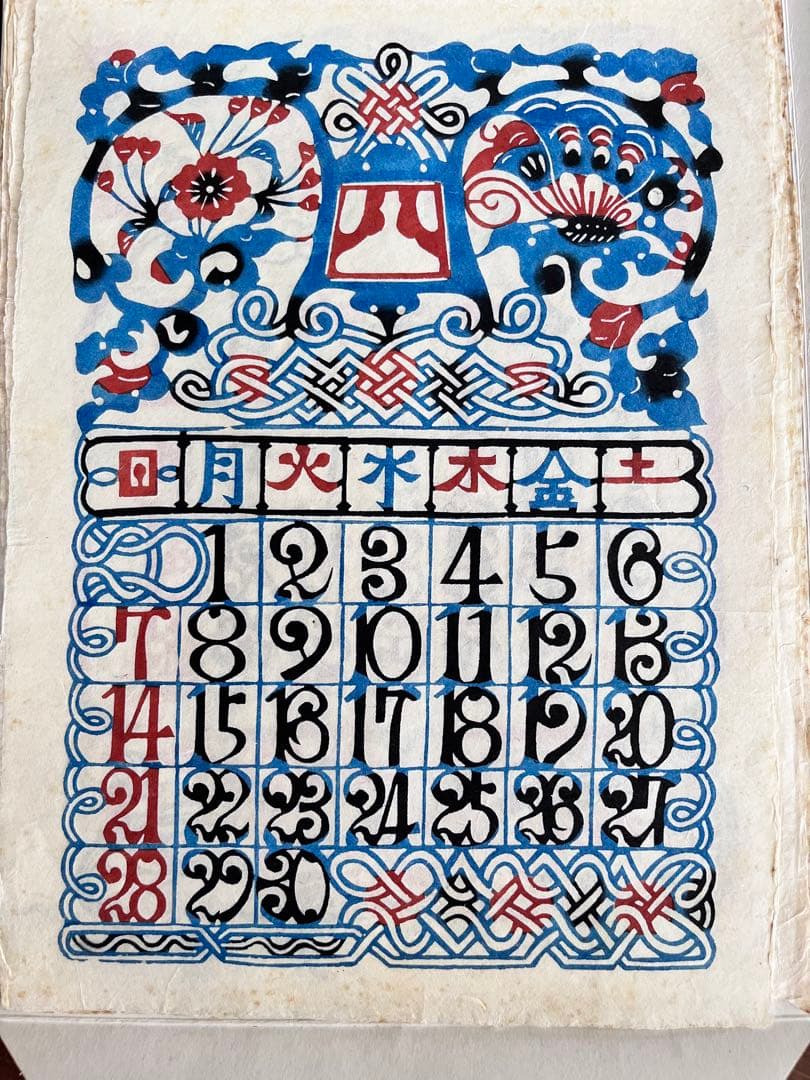 日 月 火 水 木 金 土
1 2 3 4 5 6
7 8 9 10 11 12 13
14 15 16 17 18 19 20
21 22 23 24 25 26 27
28 29 30